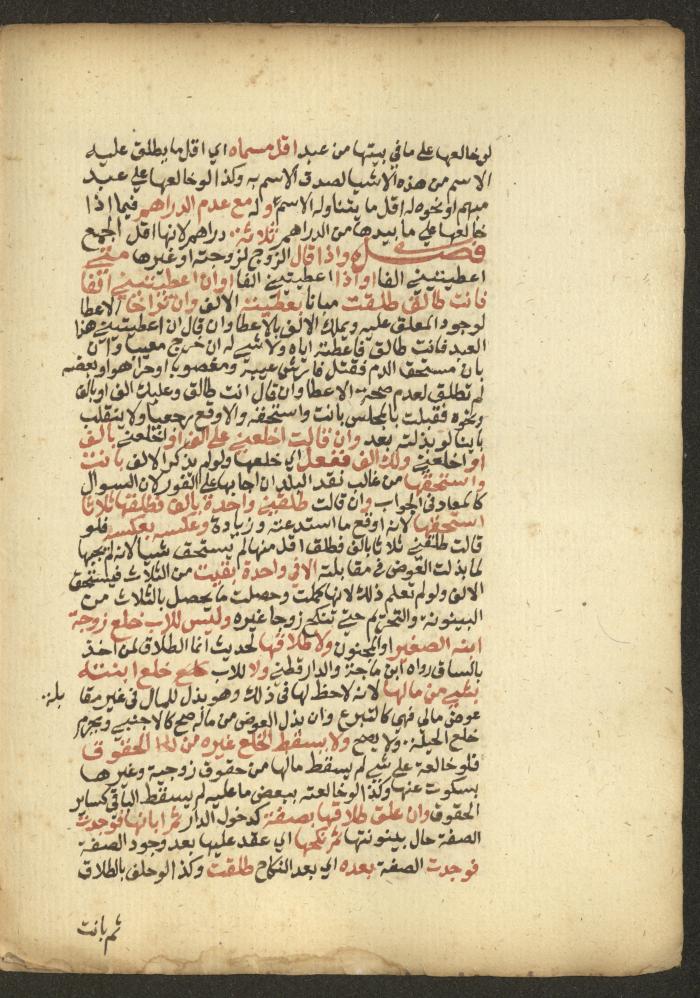 لو خالعها على ما في بيتها من عبد اقل مسماه اي اقل ما يطلق عليه
الاسم من هذه الاشيا لصدق الاسم به وكذا لو خالعها على عبد
مبهم او نحوه له اقل ما يتناوله الاسم وله مع عدم الدراهم فيما اذا
خالعها على ما بيدها من الدراهم ثلاثة دراهم لانها اقل الجمع
فصل واذا قال الزوج لزوجته او غيرها متى
اعطيتيني الفا او اذا اعطيتيني الفا او ان اعطيتيني الفا
فانت طالق طلقت باينا بعطيته الالف وان تراخا الاعطا
لوجود المعلق عليه ويملك الالف بالاعطا وان قال ان اعطيتيني هذا
العبد فانت طالق فاعطته اياه ولا شي له ان خرج معيبا وان
بان مستحق الدم فقتل فارش عيبه ومغصوبا او حرا هو او بعضه
لم تطلق لعدم صحة الاعطا وان قال انت طالق وعليك الف او بالف
ونحوه فقبلت بالمجلس بانت واستحقه والا وقع رجعيا ولا ينقلب
باينا لو بذلته بعد وان قالت اخلعني على الف او اخلعني بالف
او اخلعني ولك الف ففعل اي خلعها ولو لم يذكر الالف بانت
واستحقها من غالب نقد البلد ان اجابها على الفور لان السوال
كالمعاد في الجواب وان قالت طلقني واحدة بالف فطلقها ثلاثا
استحقها لانه اوقع ما استدعته وزيادة وعكسه بعكسه فلو
قالت طلقني ثلاثا بالف فطلق اقل منها لم يستحق شيا لانه لم يجبها
لما بذلت العوض في مقابلته الا في واحدة بقيت من الثلاث فيستحق
الالف ولو لم تعلم ذلك لانها كملت وحصلت ما يحصل بالثلاث من
البينونة والتحريم حتى تنكح زوجا غيره وليس للاب خلع زوجة
ابنه الصغير او المجنون ولا طلاقها لحديث انما الطلاق لمن اخذ
بالساق رواه ابن ماجة والدارقطني ولا للاب خلع ابنته
بشي من مالها لانه لا حظ لها في ذلك وهو بذل للمال في غير مقا بلة
عوض مالي فهي كالتبرع وان بذل العوض من ماله صح كالاجنبي ويحرم
خلع الحيلة ولا يصح ولا يسقط الخلع غيره من الحقوق
فلو خالعة على شي لم يسقط مالها من حقوق زوجية وغيرها
بسكوت عنها وكذا لو خالعته ببعض ما عليه لم يسقط الباقي كساير
الحقوق وان علق طلاقها بصفة كدخول الدار ثم ابانها فوجدت
الصفة حال بينونتها ثم نكحها اي عقد عليها بعد وجود الصفة
فوجدت الصفة بعده اي بعد النكاح طلقت وكذا لو حلف بالطلاق
ثم بانت